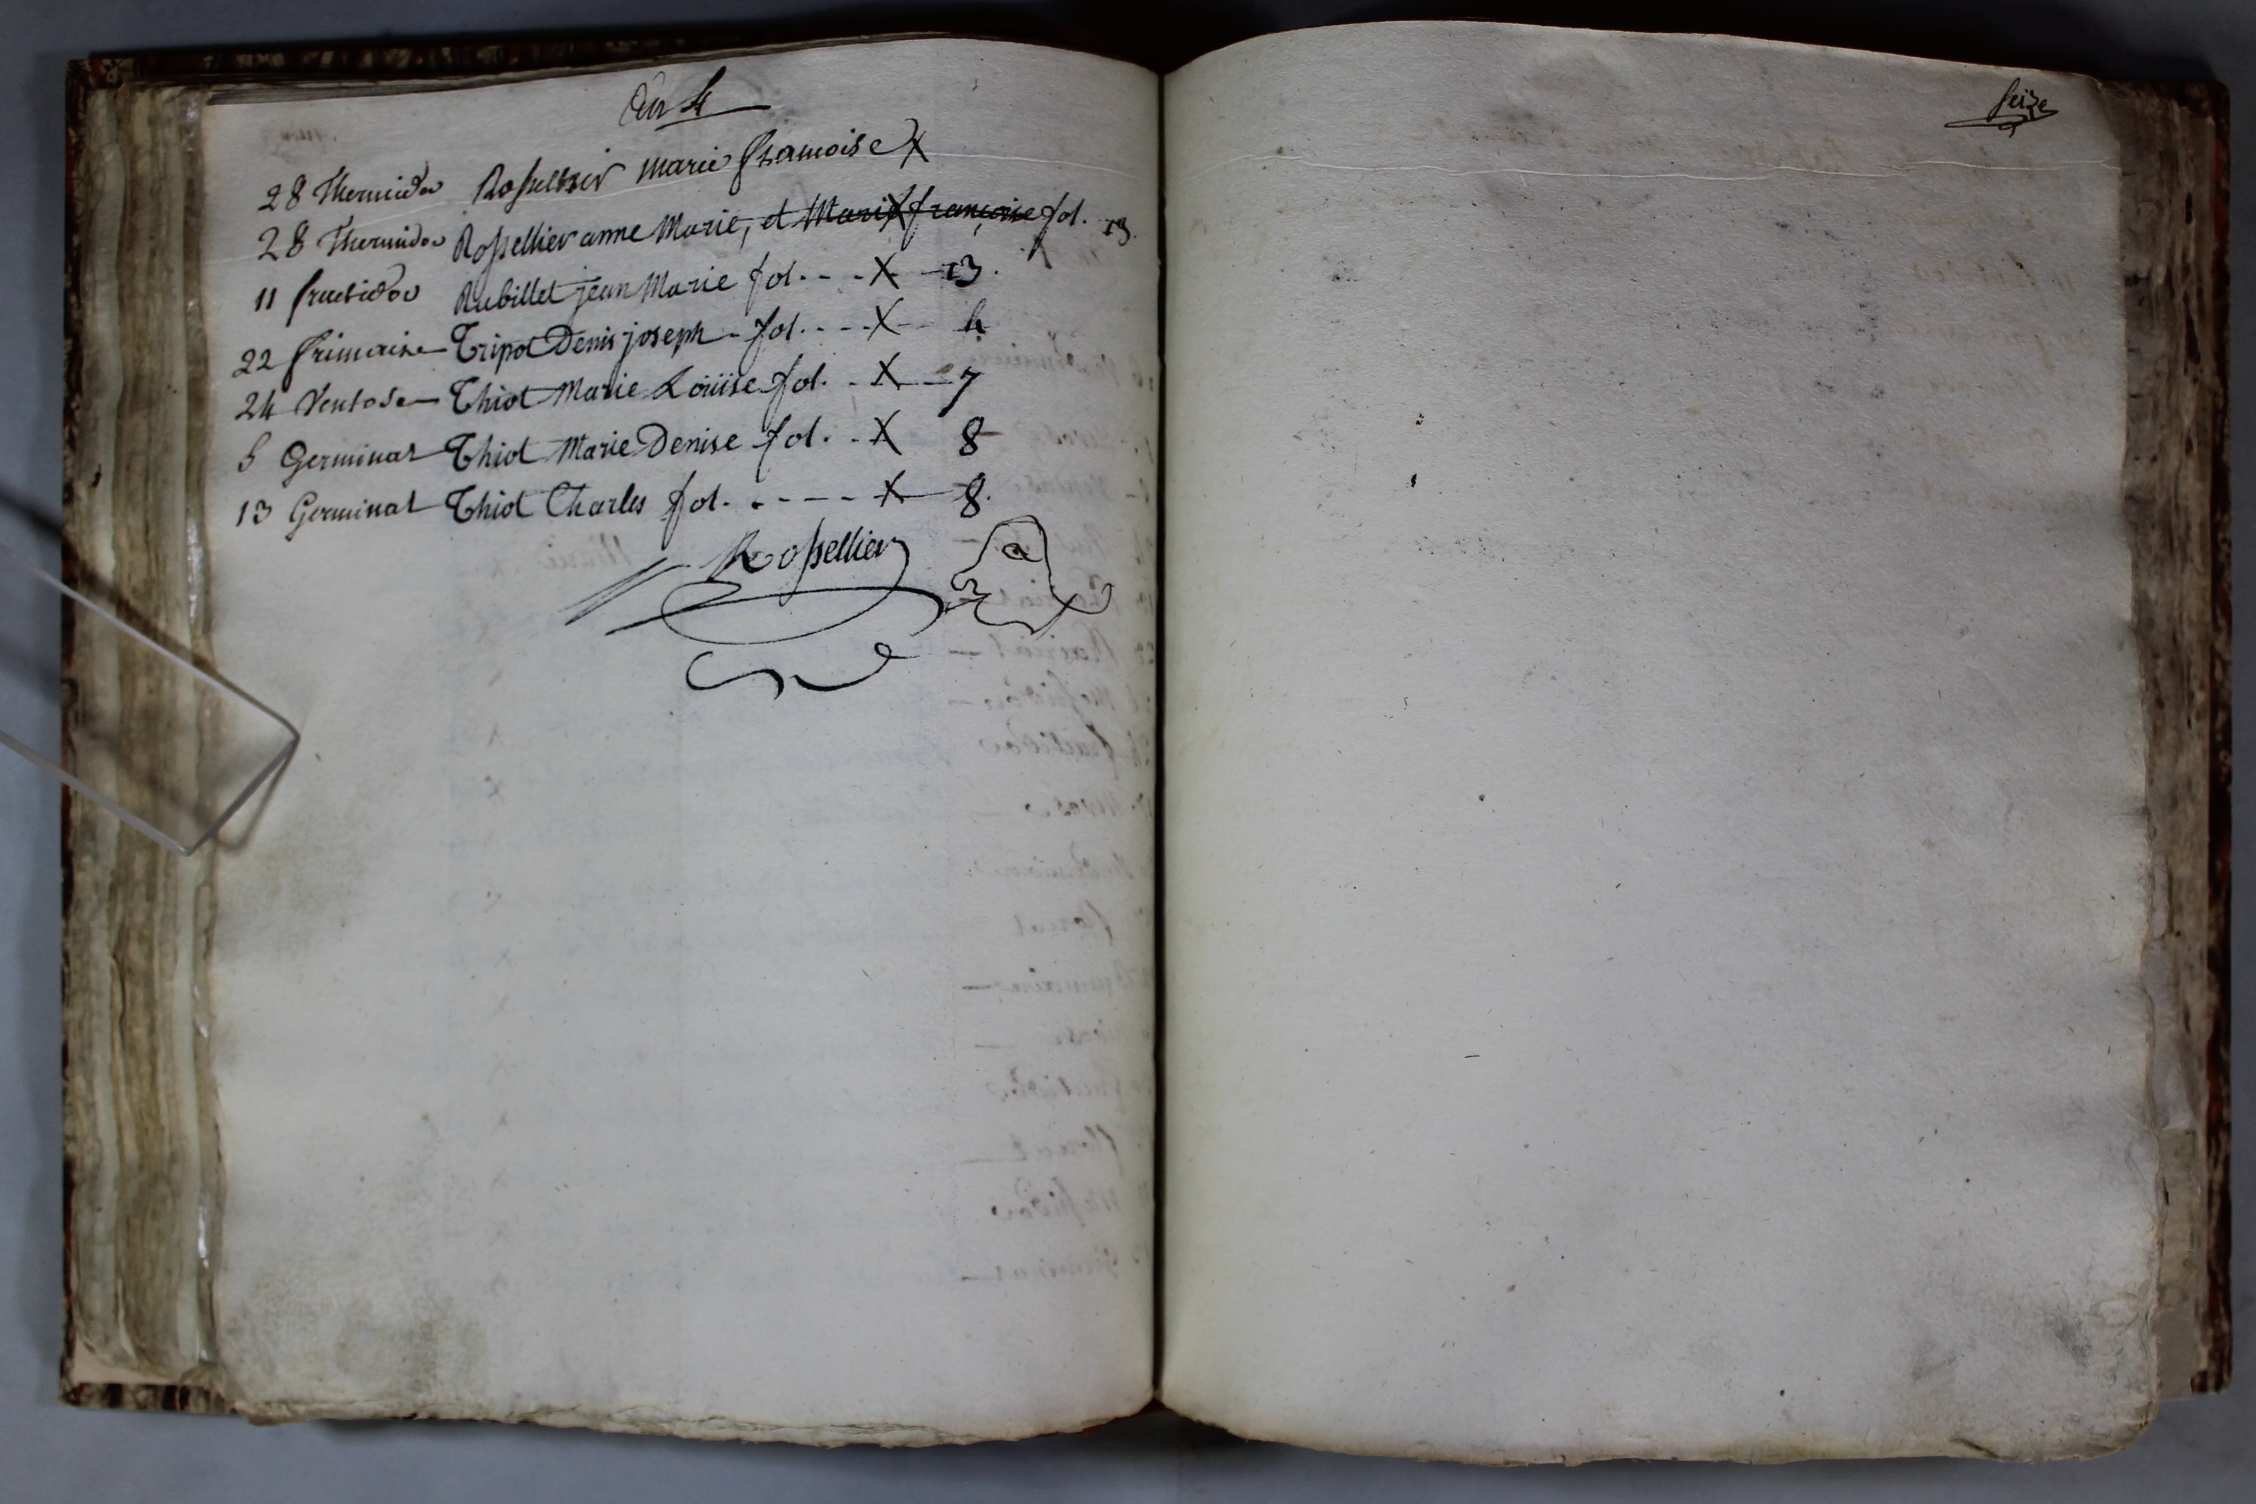 an 4
28 Thermidor Rossellier marie framoise X
28 Thermidor Rossellier anne Marie, et Marie françoise fol. X 13.
11 fructidor Rubillet jean Marie fol. - - - X - 13.
22 frimaire Tripot Denis joseph - fol. - - - X - - 4
24 Ventose Thiot Marie Loüise fol. - X - - 7
5 Germinal Thiot Marie Denise fol. - X 8
13 Germinal Thiot Charles fol. - - - - - X - 8.
Rossellier
seize